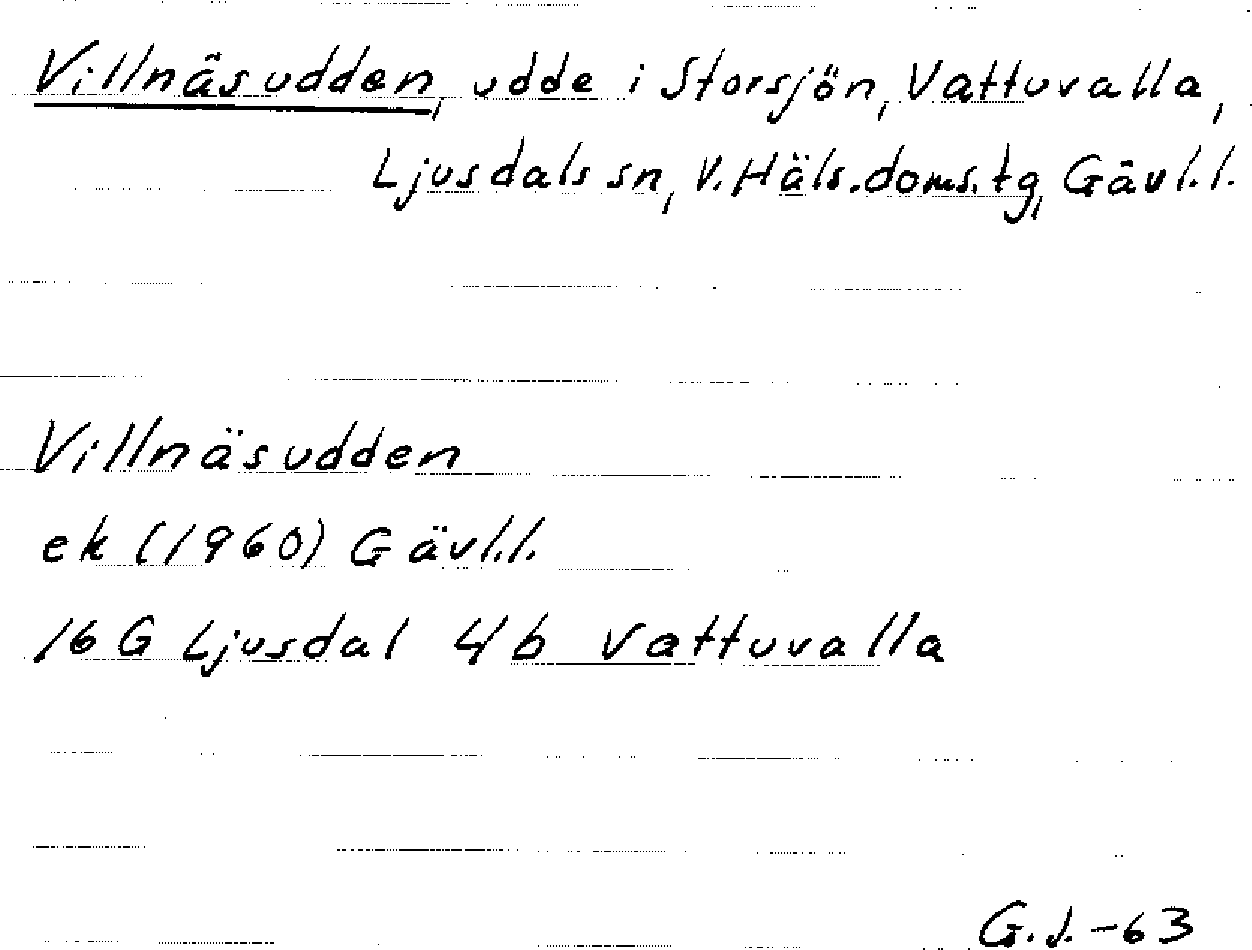 Villnäsudden, udde i Storsjön, Vattuvalla,
Ljusdals sn, V. Häls. doms. tg, Gävl. l.
Villnäsudden
ek (1960) Gävl. l.
16 G Ljusdal 4 b Vattuvalla
G. J. -63